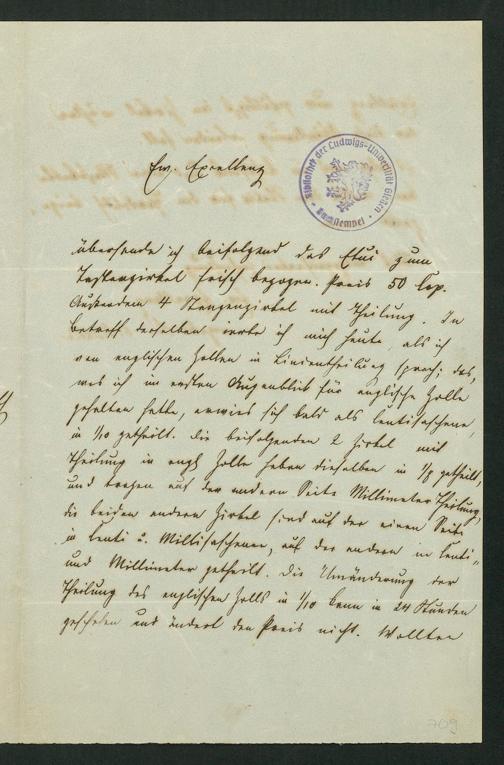 Ew. Excellenz
Bibliothek der Ludwigs-Universität Giessen
übersende ich beifolgend das Etui zum
Tasterzirkel frisch bezogen. Preis 50 Cop.
Außerdem 4 Stangenzirkel mit Theilung. In
Betreff derselben irrte ich mich heute, als ich
von englischen Zollen in Linientheilung sprach; das,
was ich im ersten Augenblick für englische Zolle
gehalten hatte, erwies sich bald als
in 1/10 getheilt. Die beifolgenden 2 Zirkel mit
Theilung in engl. Zolle haben dieselben in 1/8 getheilt,
und tragen auf der andern Seite Millimeter Theilung,
die beiden andern Zirkel sind auf der einen Seite
in auf der andern in Centi-
und Millimeter getheilt. Die Umänderung der
Theilung des englischen Zolls in 1/10 kann in 24 Stunden
geschehen und ändert den Preis nicht. Wollten
709